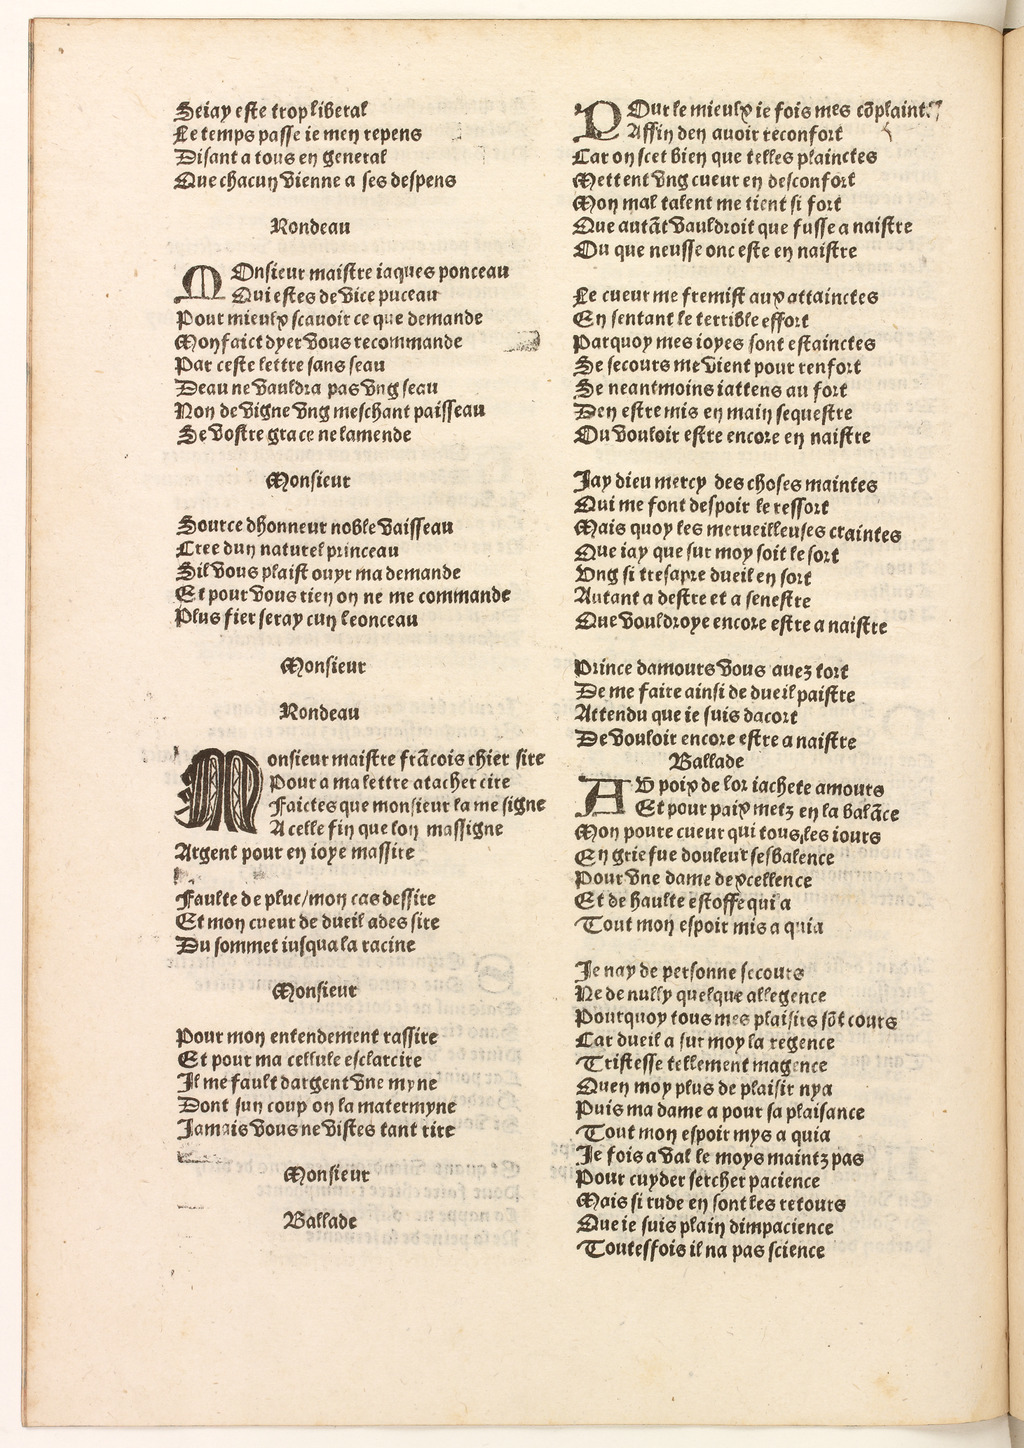 Se iay este trop liberal
Le temps passe ie men repens
Disant a tous en general
Que chacun vienne a ses despens
Rondeau
MOnsieur maistre iaques ponceau
Qui estes de vice puceau
Pour mieulx scauoir ce que demande
Mon faict dyer vous recommande
Par ceste lettre sans seau
Deau ne vauldra pas vng seau
Non de vigne vng meschant paisseau
Se vostre grace ne lamende
Monsieur
Source dhonneur noble vaisseau
Cree dun naturel princeau
Sil vous plaist ouyr ma demande
Et pour vous rien on ne me commande
Plus fier seray cun leonceau
Monsieur
Rondeau
Monsieur maistre frãcois chier sire
Pour a ma lettre atacher cire
Faictes que monsieur la me signe
A celle fin que lon massigne
Argent pour en ioye massire
Faulte de pluc/mon cas dessire
Et mon cueur de dueil ades sire
Du sommet iusqua la racine
Monsieur
Pour mon entendement rassire
Et pour ma cellule esclarcire
Il me fault dargent vne myne
Dont sun coup on la matermyne
Jamais vous ne vistes tant rire
Monsieur
Ballade
POur le mieulx ie fois mes cõplaint
Affin den auoir reconfort
Car on scet bien que telles plainctes
Mettent vng cueur en desconfort
Mon mal talent me tient si fort
Que autãt vauldroit que fusse a naistre
Ou que neusse onc este en naistre
Le cueur me fremist aux attainctes
En sentant le terrible effort
Parquoy mes ioyes sont estainctes
Se secours me vient pour renfort
Se neantmoins iattens au fort
Den estre mis en main sequestre
Ou vouloir estre encore en naistre
Jay dieu mercy des choses maintes
Qui me font despoir le ressort
Mais quoy les merueilleuses craintes
Que iay que sur moy soit le sort
Vng si tresapre dueil en sort
Autant a destre et a senestre
Que vouldroye encore estre a naistre
Prince damours vous auez tort
De me faire ainsi de dueil paistre
Attendu que ie suis dacort
De vouloir encore estre a naistre
Ballade
AV poix de lor iachete amours
Et pour paix metz en la balãce
Mon poure cueur qui tous les iours
En griefue douleur ses balence
Pour vne dame dexcellence
Et de haulte estoffe qui a
Tout mon espoir mis a quia
Je nay de personne secours
Ne de nully quelque allegence
Pourquoy tous mes plaisirs sõt cours
Car dueil a sur moy la regence
Tristesse tellement magence
Quen moy plus de plaisir nya
Puis ma dame a pour sa plaisance
Tout mon espoir mys a quia
Je fois a val le moys maintz pas
Pour cuyder sercher pacience
Mais si rude en sont les retours
Que ie suis plain dimpacience
Toutesfois il na pas science